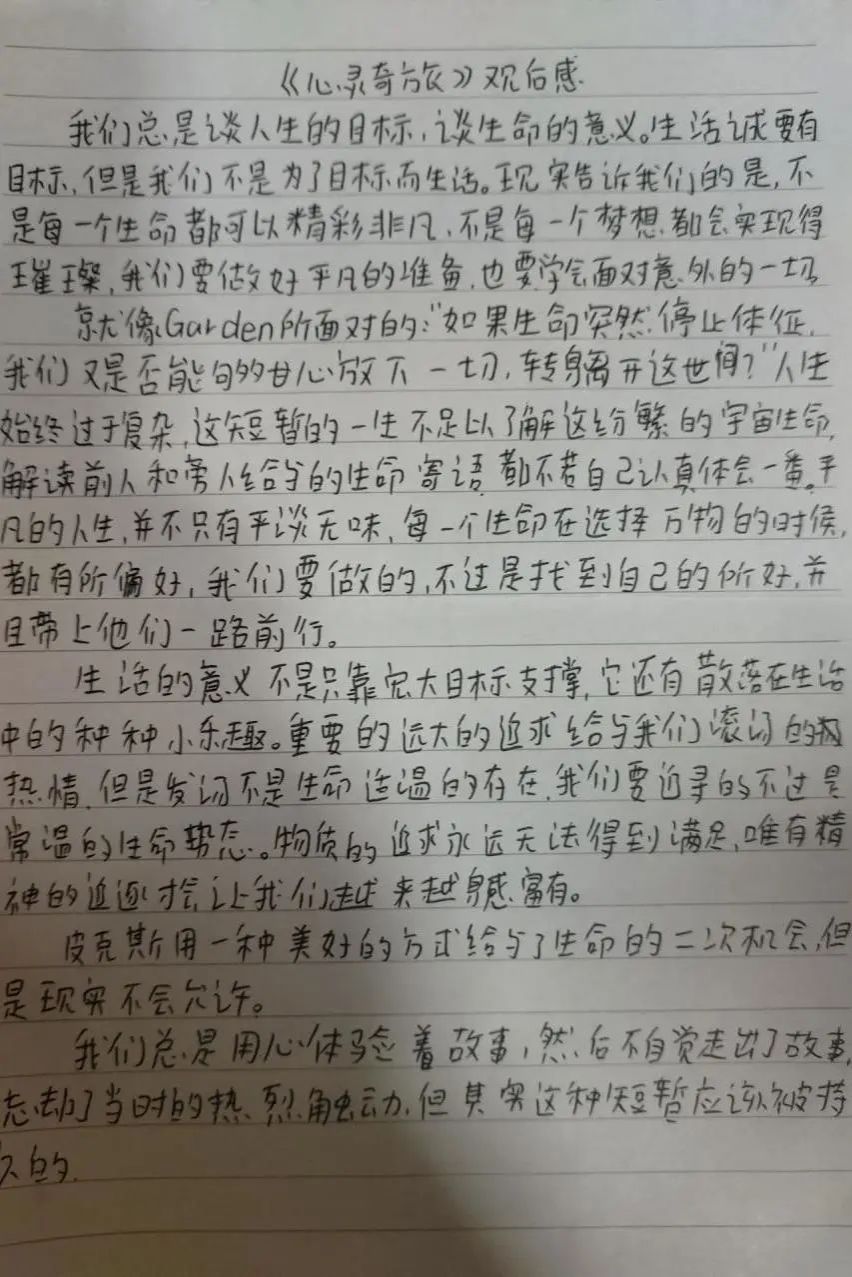 《心灵奇旅》观后感
我们总是谈人生的目标,谈生命的意义。生活诚要有
目标,但是我们不是为了目标而生活。现实告诉我们的是,不
是每一个生命都可以精彩非凡,不是每一个梦想都会实现得
璀璨,我们要做好平凡的准备,也要学会面对意外的一切
就像Garden所面对的:"如果生命突然停止体征,
我们又是否能够甘心放下一切,转身离开这世间?"人生
始终过于复杂,这短暂的一生不足以了解这纷繁的宇宙生命,
解读前人和旁人给与的生命寄语都不若自己认真体会一番。平
凡的人生,并不只有平淡无味,每一个生命在选择万物的时候,
都有所偏好,我们要做的,不过是找到自己的所好,并
且带上他们一路前行。
生活的意义不是只靠宏大目标支撑,它还有散落在生活
中的种种小乐趣。重要的远大的追求给与我们滚汤的
热情,但是发汤不是生命适温的存在,我们要追寻的不过是
常温的生命势态。物质的追求永远无法得到满足,唯有精
神的追逐才会让我们越来越身感富有。
皮克斯用一种美好的方式给与了生命的二次机会,但
是现实不会允许。
我们总是用心体验着故事,然后不自觉走出了故事,
忘却了当时的热烈触动,但其实这种短暂应该被持
久的.